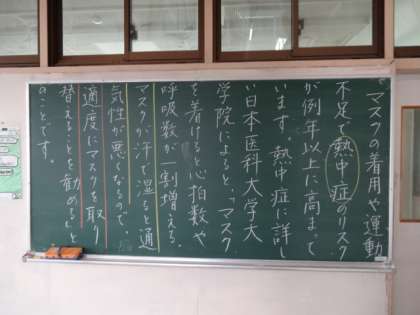 マスクの着用や運動
不足で熱中症のリスク
が例年以上に高まって
います。熱中症に詳し
い日本医科大学大
学院によると、「マスク
を着けると心拍数や
呼吸数が一割増える。
マスクが汗で湿ると通
気性が悪くなるので、
適度にマスクを取り
替えることを勧める」と
のことです。